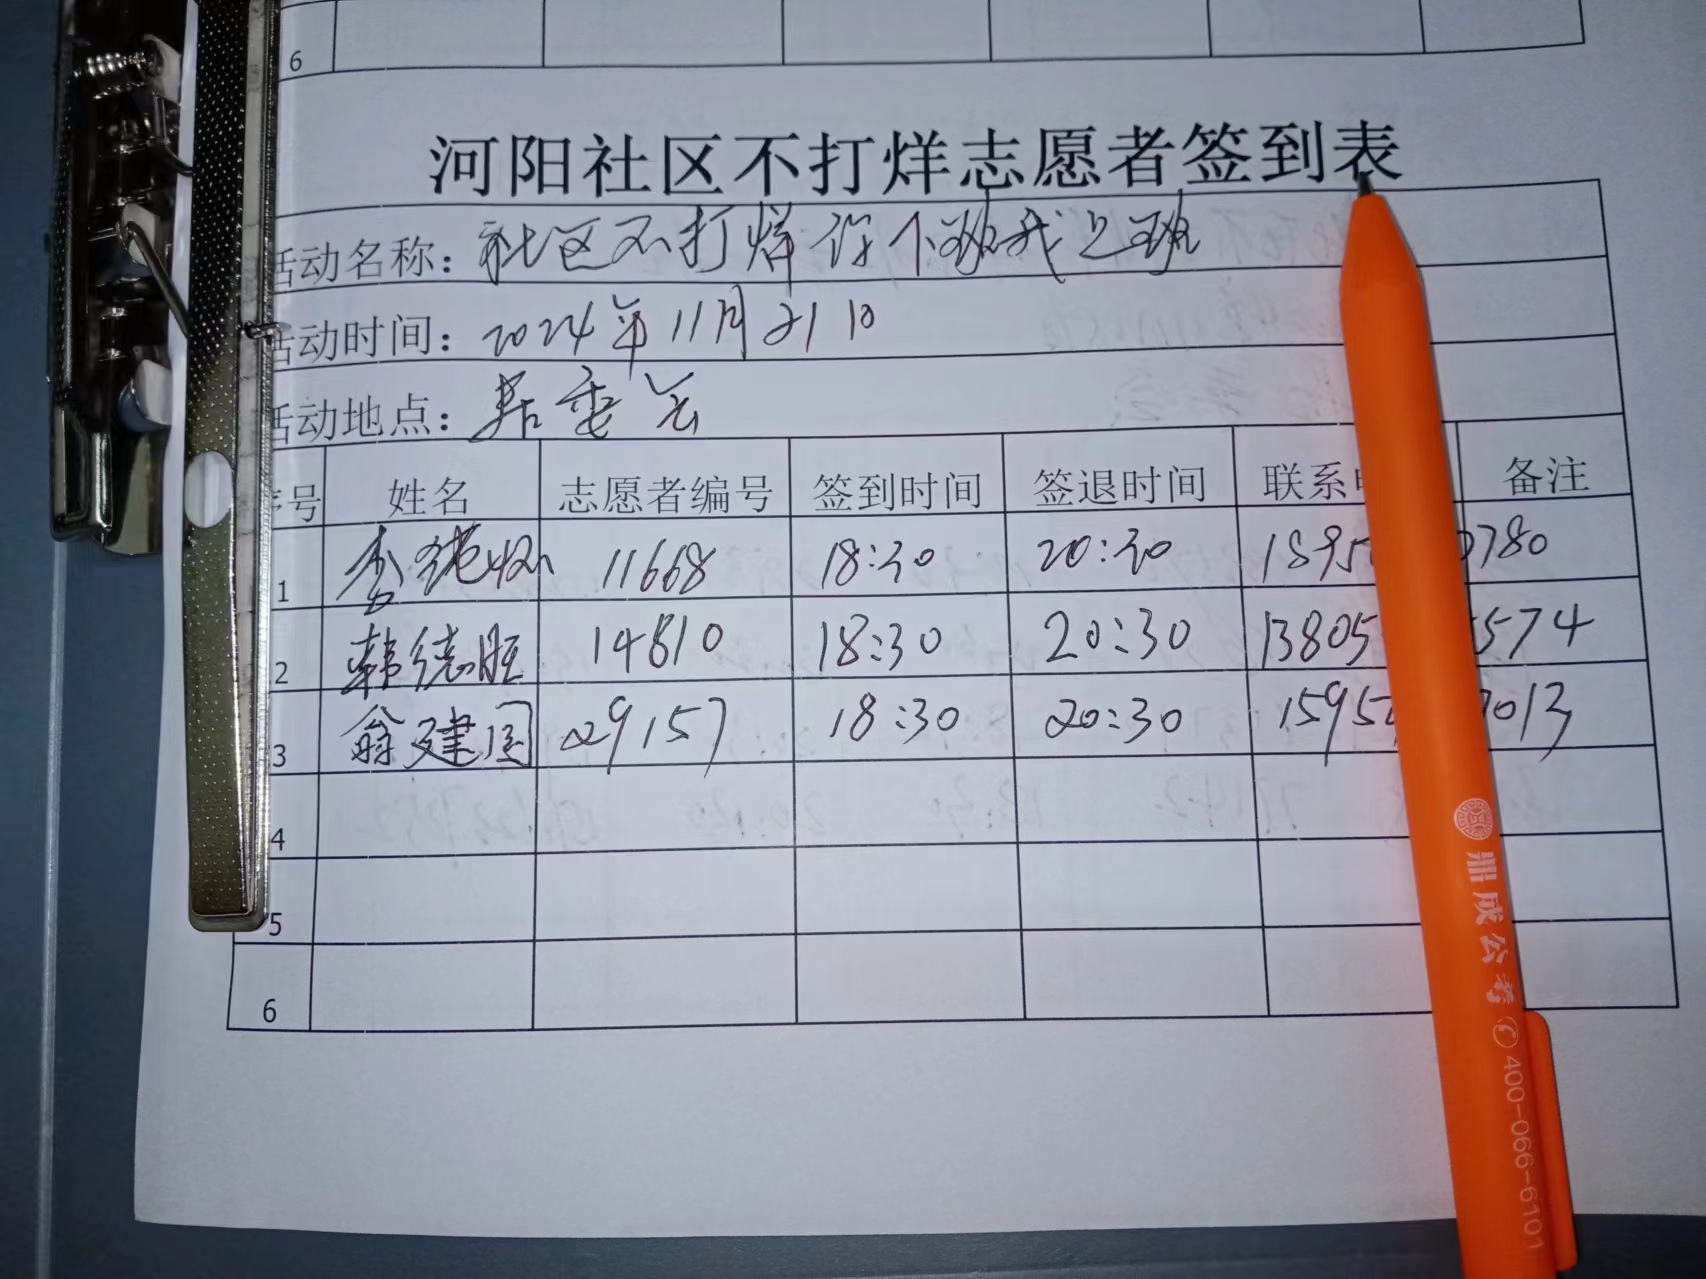 6
河阳社区不打烊志愿者签到表
活动名称：社区不打烊 你下班我上班
活动时间：2024年11月21日
活动地点：居委会
序号 姓名 志愿者编号 签到时间 签退时间 联系 备注
1 11668 18:30 20:30 1895 780
2 韩德胜 14810 18:30 20:30 13805 5574
3 翁建国 29157 18:30 20:30 1595 7013
4
5
6
鼎成公考 400-066-6101